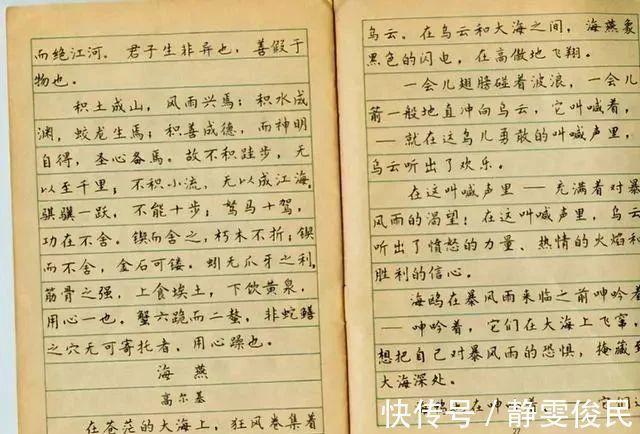 而绝江河。君子生非异也，善假于
物也。
积土成山，风雨兴焉；积水成
渊，蛟龙生焉；积善成德，而神明
自得，圣心备焉。故不积跬步，无
以至千里；不积小流，无以成江海。
骐骥一跃，不能十步；驽马十驾，
功在不舍。锲而舍之，朽木不折；锲
而不舍，金石可镂。蚓无爪牙之利，
筋骨之强，上食埃土，下饮黄泉，
用心一也。蟹六跪而二螯，非蛇鳝
之穴无可寄托者，用心躁也。
海燕
高尔基
在苍茫的大海上，狂风卷集着
乌云。在乌云和大海之间，海燕象
黑色的闪电，在高傲地飞翔。
一会儿翅膀碰着波浪，一会儿
箭一般地直冲向乌云，它叫喊着，
—就在这鸟儿勇敢的叫喊声里，
乌云听出了欢乐。
在这叫喊声里——充满着对暴
风雨的渴望！在这叫喊声里，乌云
听出了愤怒的力量、热情的火焰和
胜利的信心。
海鸥在暴风雨来临之前呻吟着，
—呻吟着，它们在大海上飞窜，
想把自己对暴风雨的恐惧，掩藏到
大海深处。
在呻吟着
它们
快传号／静雯俊民